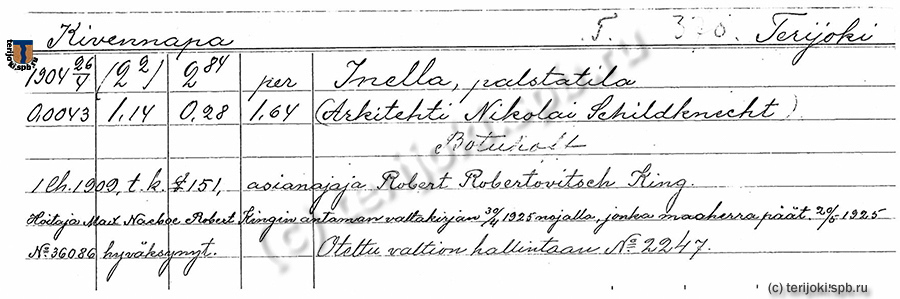 Kivennapa T. 370. Terijoki
1904 26/4 (2²) 2⁸⁴ per Inella, palstatila
0,0043 1,14 0,28 1,64 (Arkitehti Nikolai Schildknecht)
1 lh. 1909, t. k. § 151, asianajaja Robert Robertovitsch King.
Hoitaja Max Robert Kingin antaman valtakirjan 30/4 1925 nojalla, jonka maaherra päät. 20/5 1925
№ 36086 hyväksynyt. Otettu valtion hallintaan № 2247.
terijoki.spb.ru
(c) terijoki.spb.ru
(c) terijoki.spb.ru